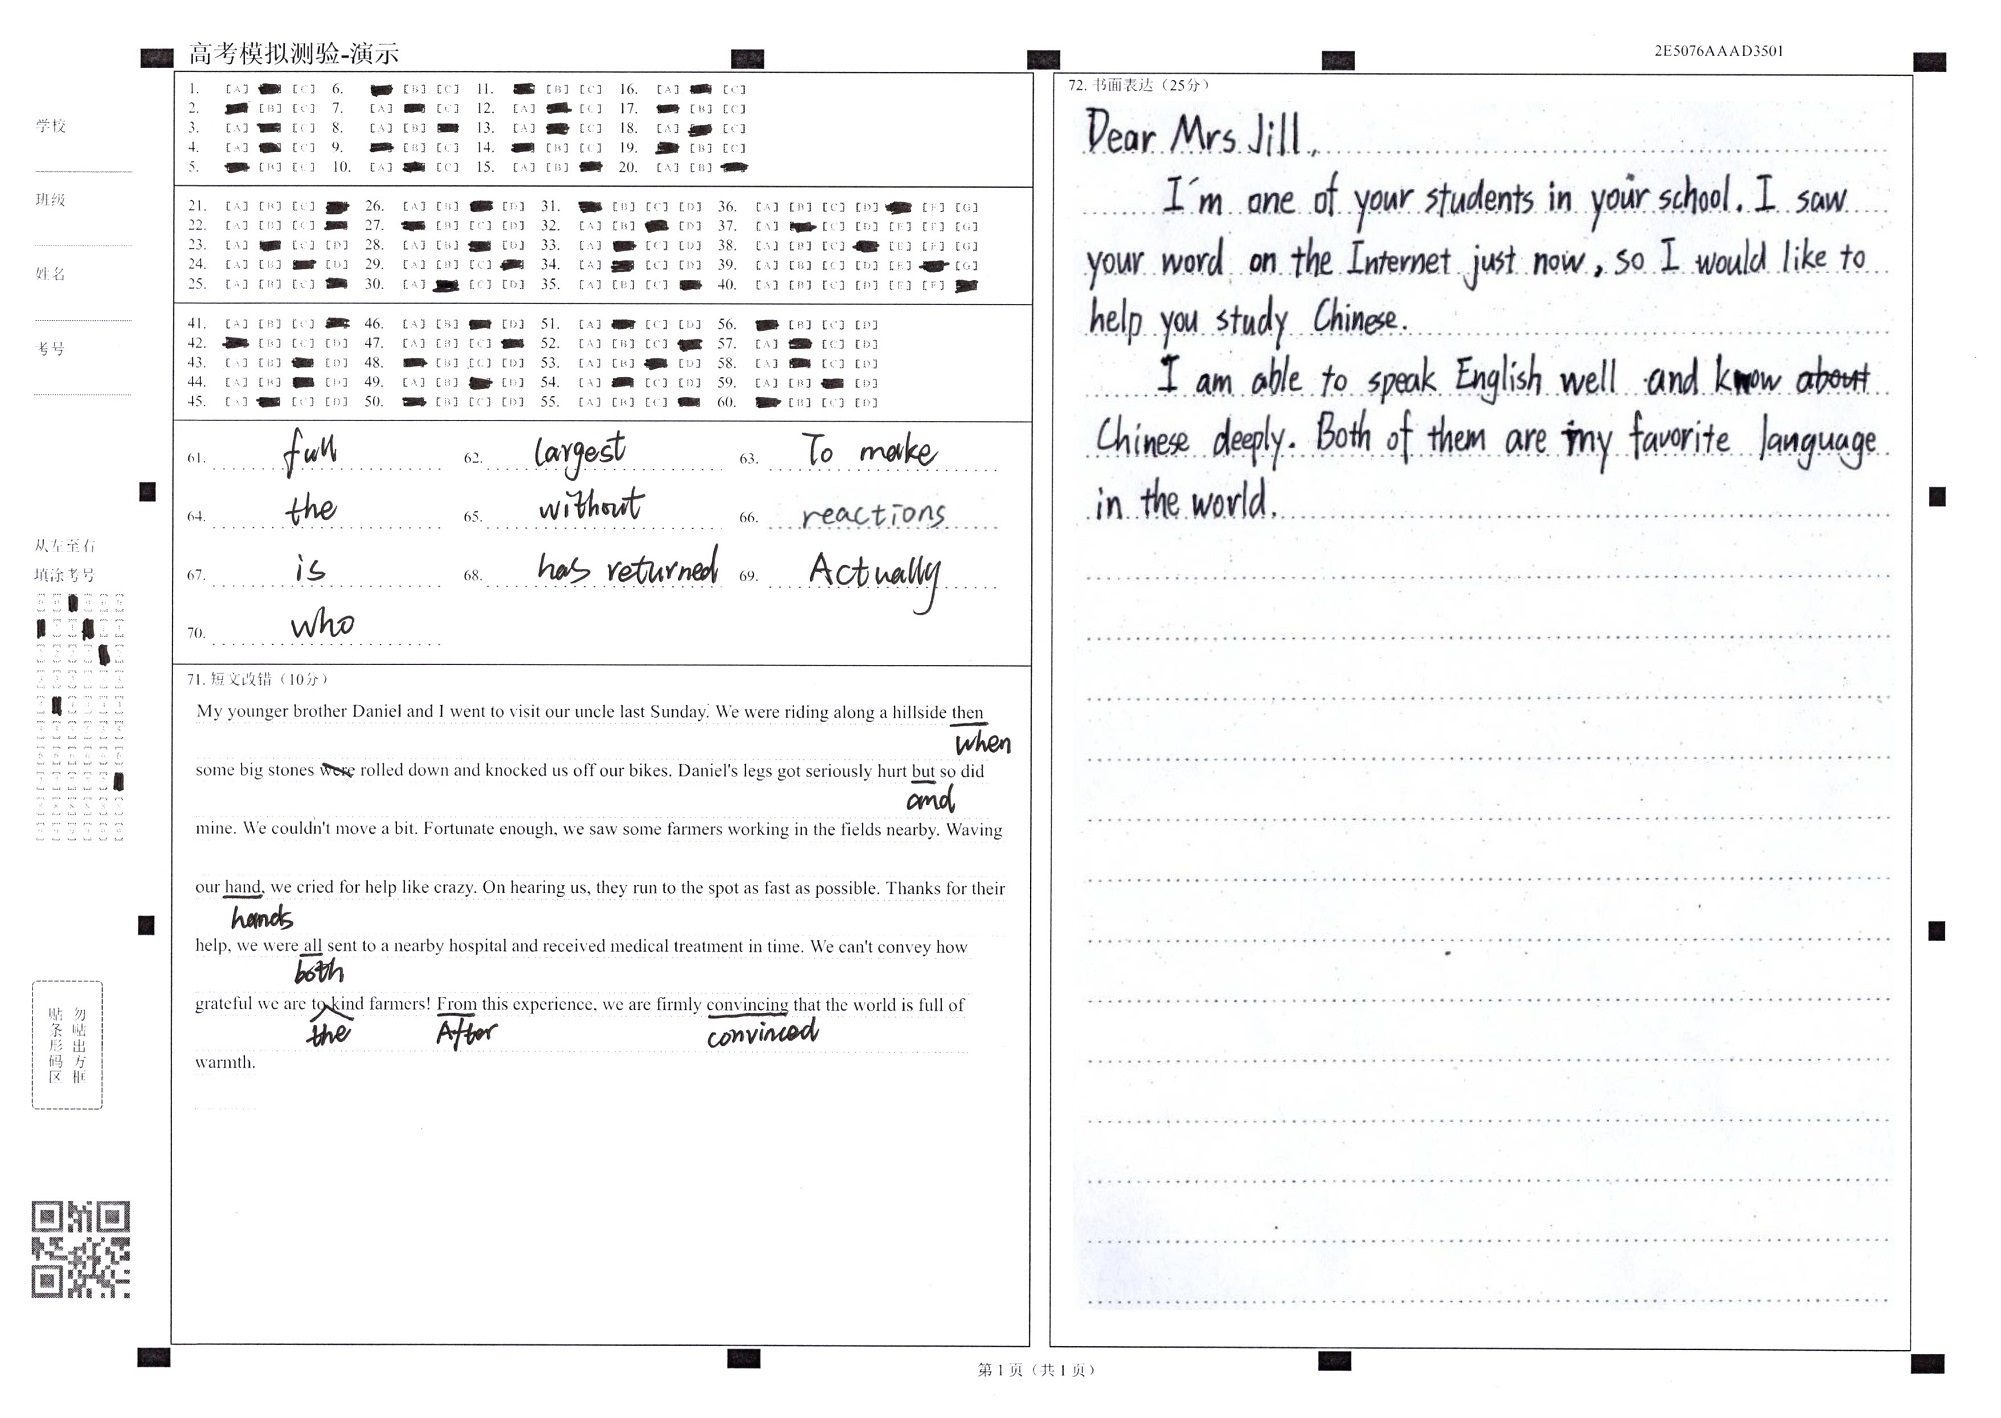 高考模拟测验-演示
2E5076AAAD3501
学校
班级
姓名
考号
从左至右
填涂考号
贴条形码区
勿贴出方框
1. [A] [C] 6. [B] [C] 11. [B] [C] 16. [A] [C]
2. [B] [C] 7. [A] [C] 12. [A] [C] 17. [B] [C]
3. [A] [C] 8. [A] [B] 13. [A] [C] 18. [A] [C]
4. [A] [C] 9. [B] [C] 14. [B] [C] 19. [B] [C]
5. [B] [C] 10. [A] [C] 15. [A] [B] 20. [A] [B]
21. [A] [B] [C] 26. [A] [B] [D] 31. [B] [C] [D] 36. [A] [B] [C] [D] [F] [G]
22. [A] [B] [C] 27. [B] [C] [D] 32. [A] [B] [D] 37. [A] [C] [D] [E] [F] [G]
23. [A] [C] [D] 28. [A] [B] [D] 33. [A] [C] [D] 38. [A] [B] [C] [E] [F] [G]
24. [A] [B] [D] 29. [A] [B] [C] 34. [A] [C] [D] 39. [A] [B] [C] [D] [E] [G]
25. [A] [B] [C] 30. [A] [C] [D] 35. [A] [B] [C] 40. [A] [B] [C] [D] [E] [F]
41. [A] [B] [C] 46. [A] [B] [D] 51. [A] [C] [D] 56. [B] [C] [D]
42. [B] [C] [D] 47. [A] [B] [C] 52. [A] [B] [C] 57. [A] [C] [D]
43. [A] [B] [D] 48. [B] [C] [D] 53. [A] [B] [D] 58. [A] [C] [D]
44. [A] [B] [D] 49. [A] [B] [D] 54. [A] [C] [D] 59. [A] [B] [D]
45. [A] [C] [D] 50. [B] [C] [D] 55. [A] [B] [C] 60. [B] [C] [D]
61. full 62. largest 63. To make
64. the 65. without 66. reactions
67. is 68. has returned 69. Actually
70. who
71. 短文改错（10分）
My younger brother Daniel and I went to visit our uncle last Sunday. We were riding along a hillside then
when
some big stones were rolled down and knocked us off our bikes. Daniel's legs got seriously hurt but so did
and
mine. We couldn't move a bit. Fortunate enough, we saw some farmers working in the fields nearby. Waving
our hand, we cried for help like crazy. On hearing us, they run to the spot as fast as possible. Thanks for their
hands
help, we were all sent to a nearby hospital and received medical treatment in time. We can't convey how
both
grateful we are to kind farmers! From this experience, we are firmly convincing that the world is full of
the After convinced
warmth.
72. 书面表达（25分）
Dear Mrs Jill,
I'm one of your students in your school. I saw
your word on the Internet just now, so I would like to
help you study Chinese.
I am able to speak English well and know about
Chinese deeply. Both of them are my favorite language
in the world.
第 1 页（共 1 页）